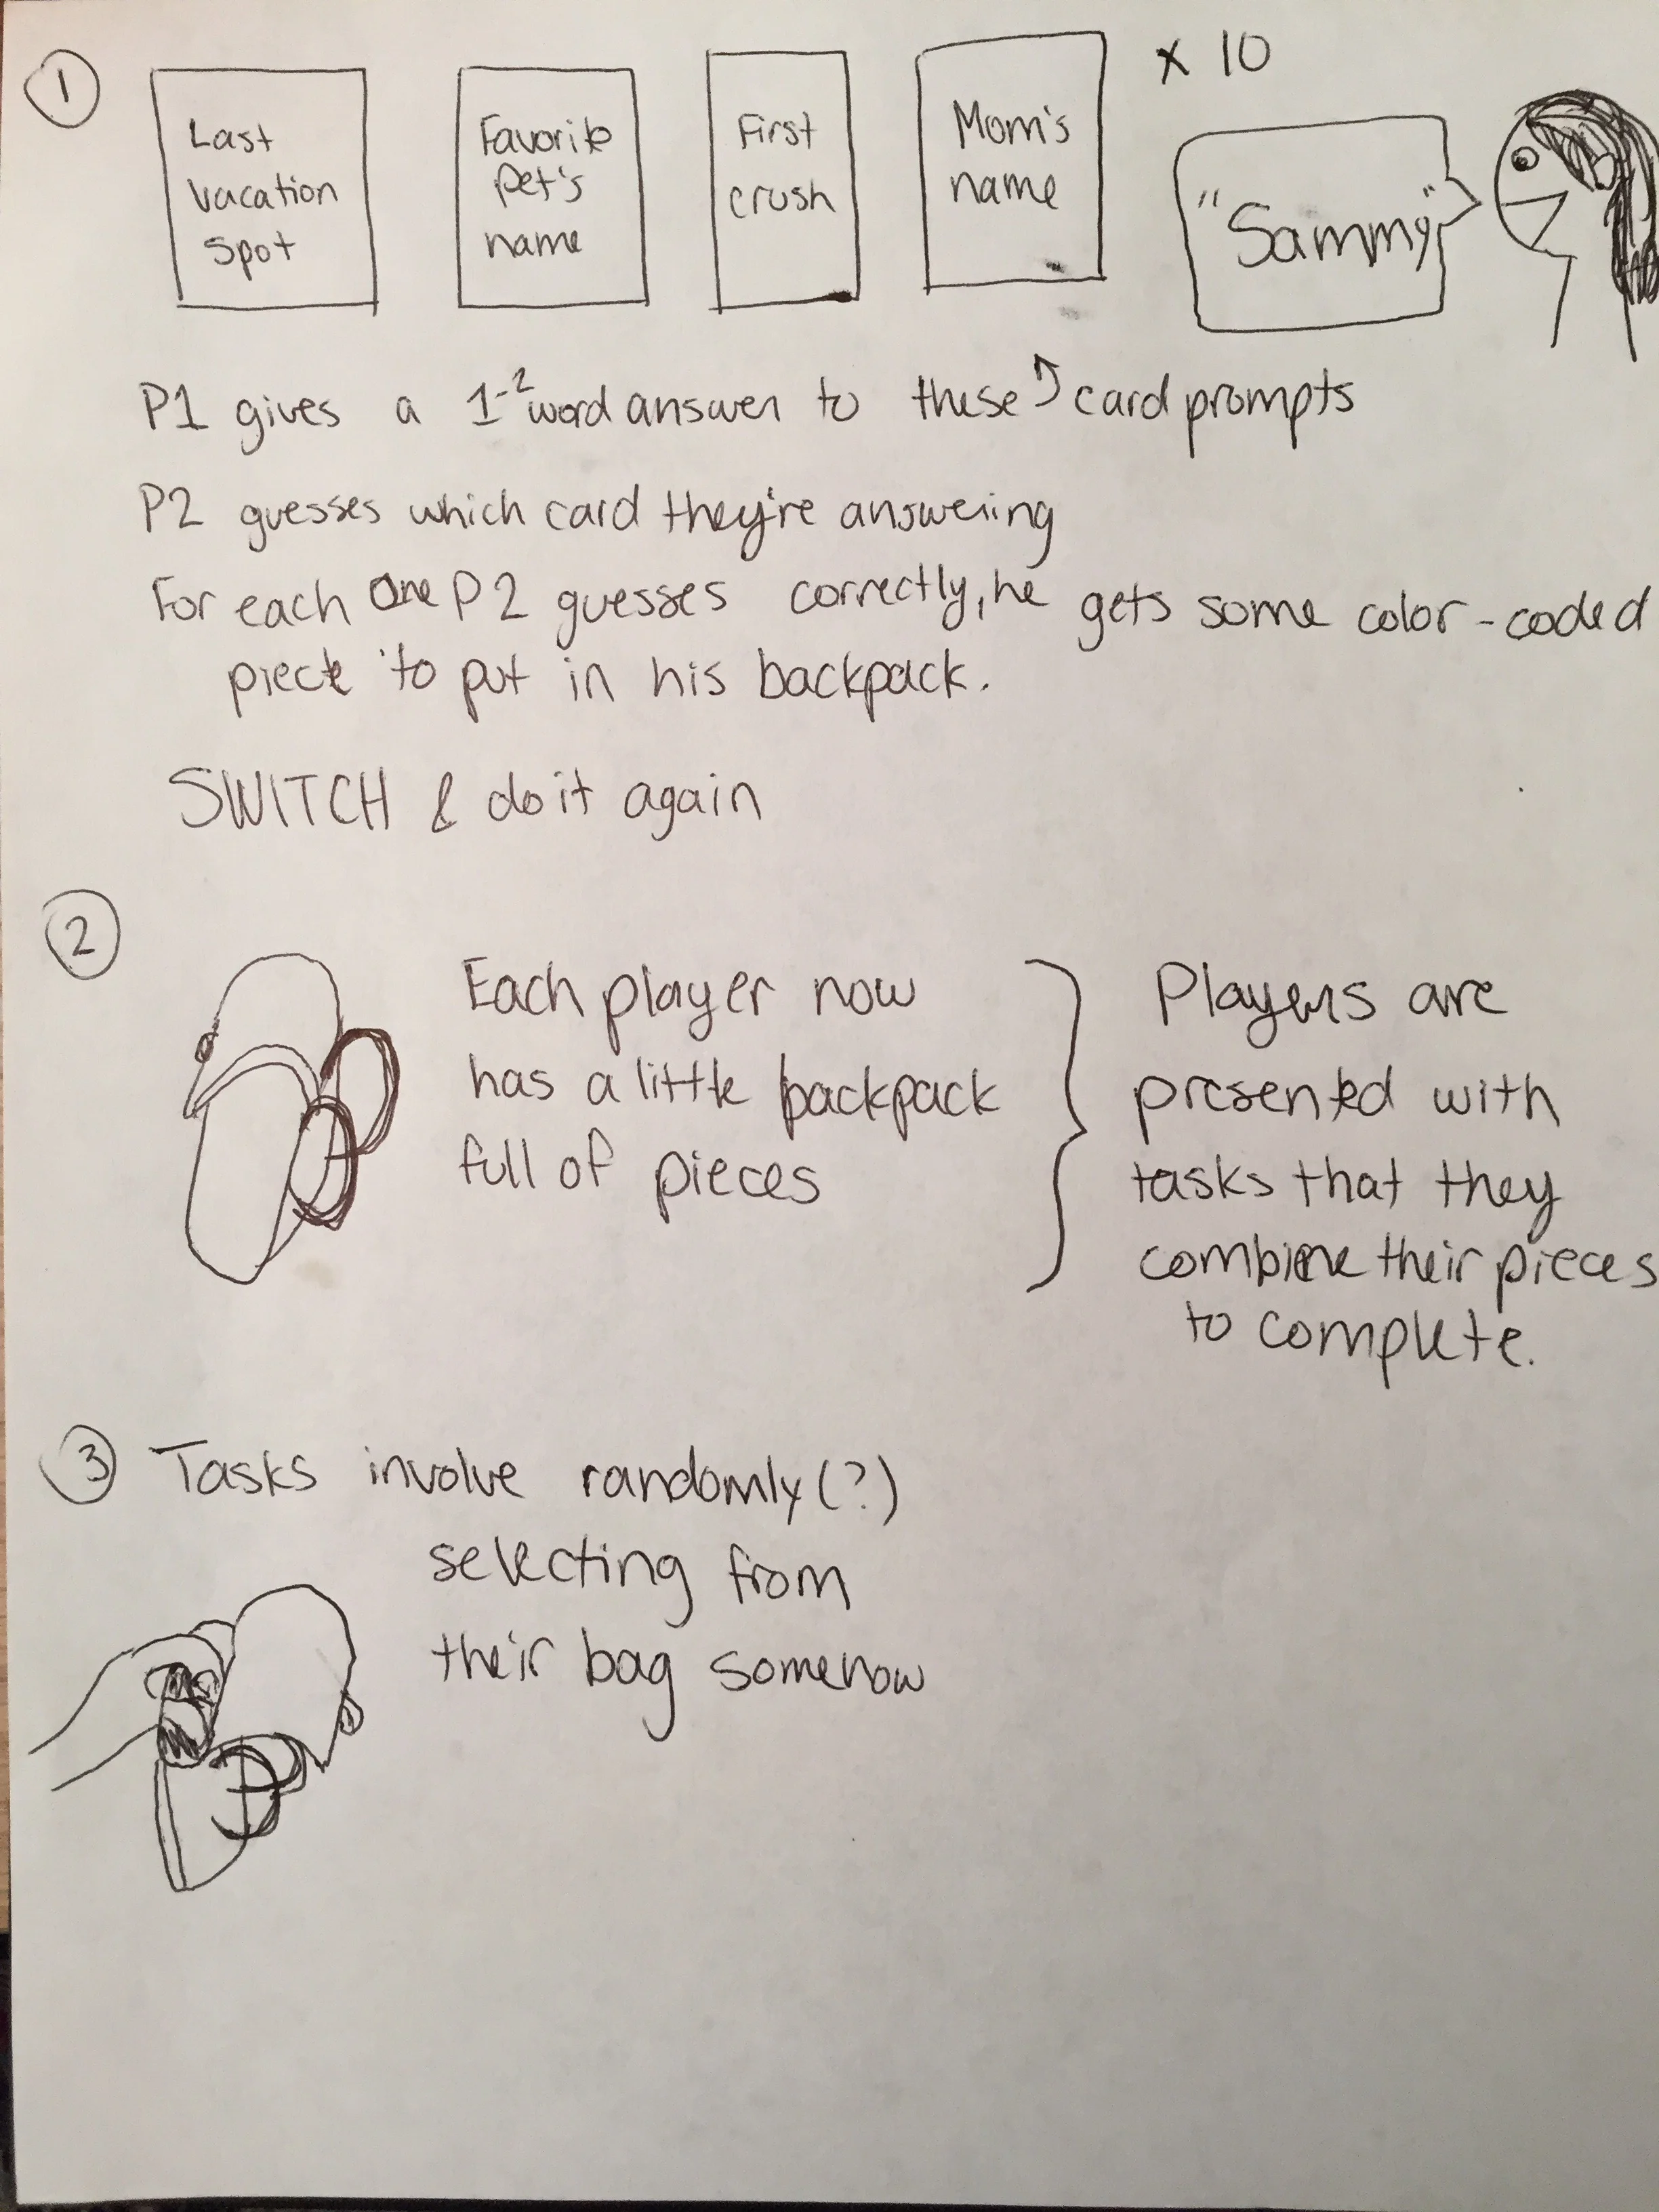 1
Last
vacation
spot
Favorite
pet's
name
First
crush
Mom's
name
x 10
"Sammy"
P1 gives a 1-2 word answer to these ↑ card prompts
P2 guesses which card they're answering
For each one P2 guesses correctly, he gets some color-coded
piece to put in his backpack.
SWITCH & do it again
2
Each player now
has a little backpack
full of pieces
Players are
presented with
tasks that they
combine their pieces
to complete.
3 Tasks involve randomly(?)
selecting from
their bag somehow